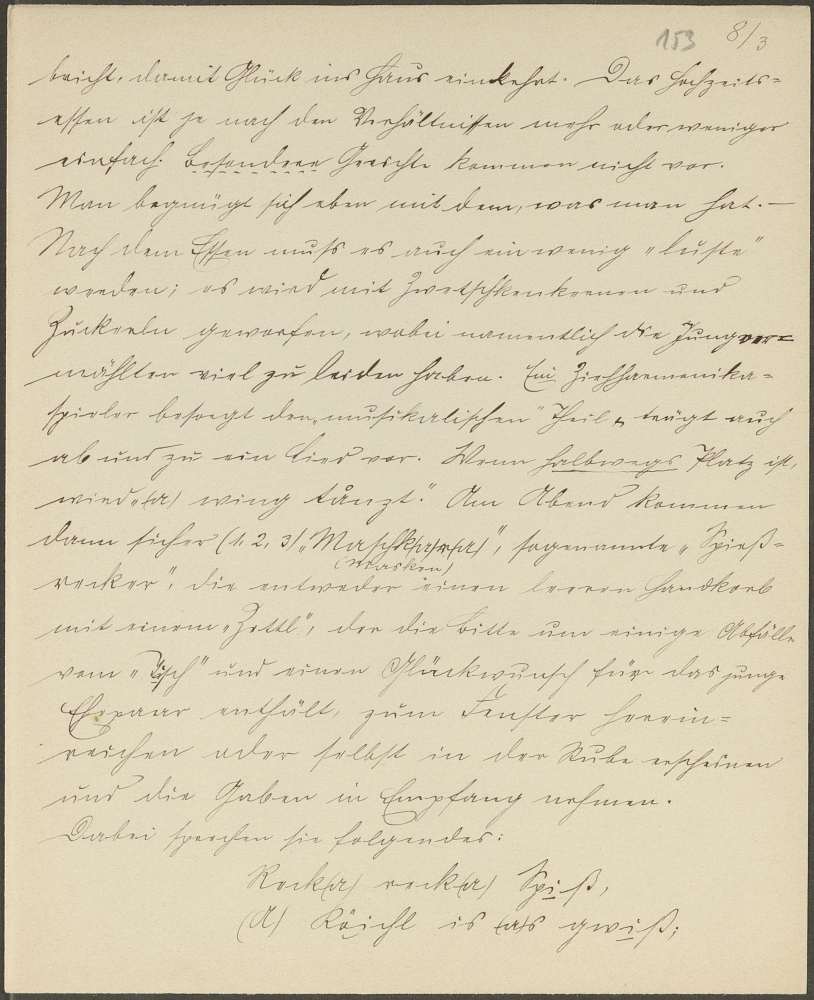 153 8/3
bricht, damit Glück ins Haus einkehrt. Das Hochzeits=
essen ist je nach den Verhältnissen mehr oder weniger
einfach. Besondere Gerichte kommen nicht vor.
Man begnügt sich eben mit dem, was man hat. —
Nach dem Essen muß es auch ein wenig „luste"
werden; es wird mit Zwetschkenkernen und
Zuckerln geworfen, wobei namentlich die Jungver=
mählten viel zu leiden haben. Ein Ziehharmonika=
spieler besorgt den „musikalischen" Theil & trägt auch
ab und zu ein Lied vor. Wenn halbwegs Platz ist,
wird „(a) wing tånzt." Am Abend kommen
dann sicher (1, 2, 3) „Maschk(a)r(a)", sogenannte „Spieß=
(Masken)
recker", die entweder einen leeren Handkorb
mit einem „Zettl", der die Bitte um einige Abfälle
vom „Tisch" und einen Glückwunsch für das junge
Ehepaar enthält, zum Fenster herein=
reichen oder selbst in der Stube erscheinen
und die Gaben in Empfang nehmen.
Dabei sprechen sie folgendes:
Reck(a) reck(a) Spiß,
(A) Räichl is (a)s gwiß;